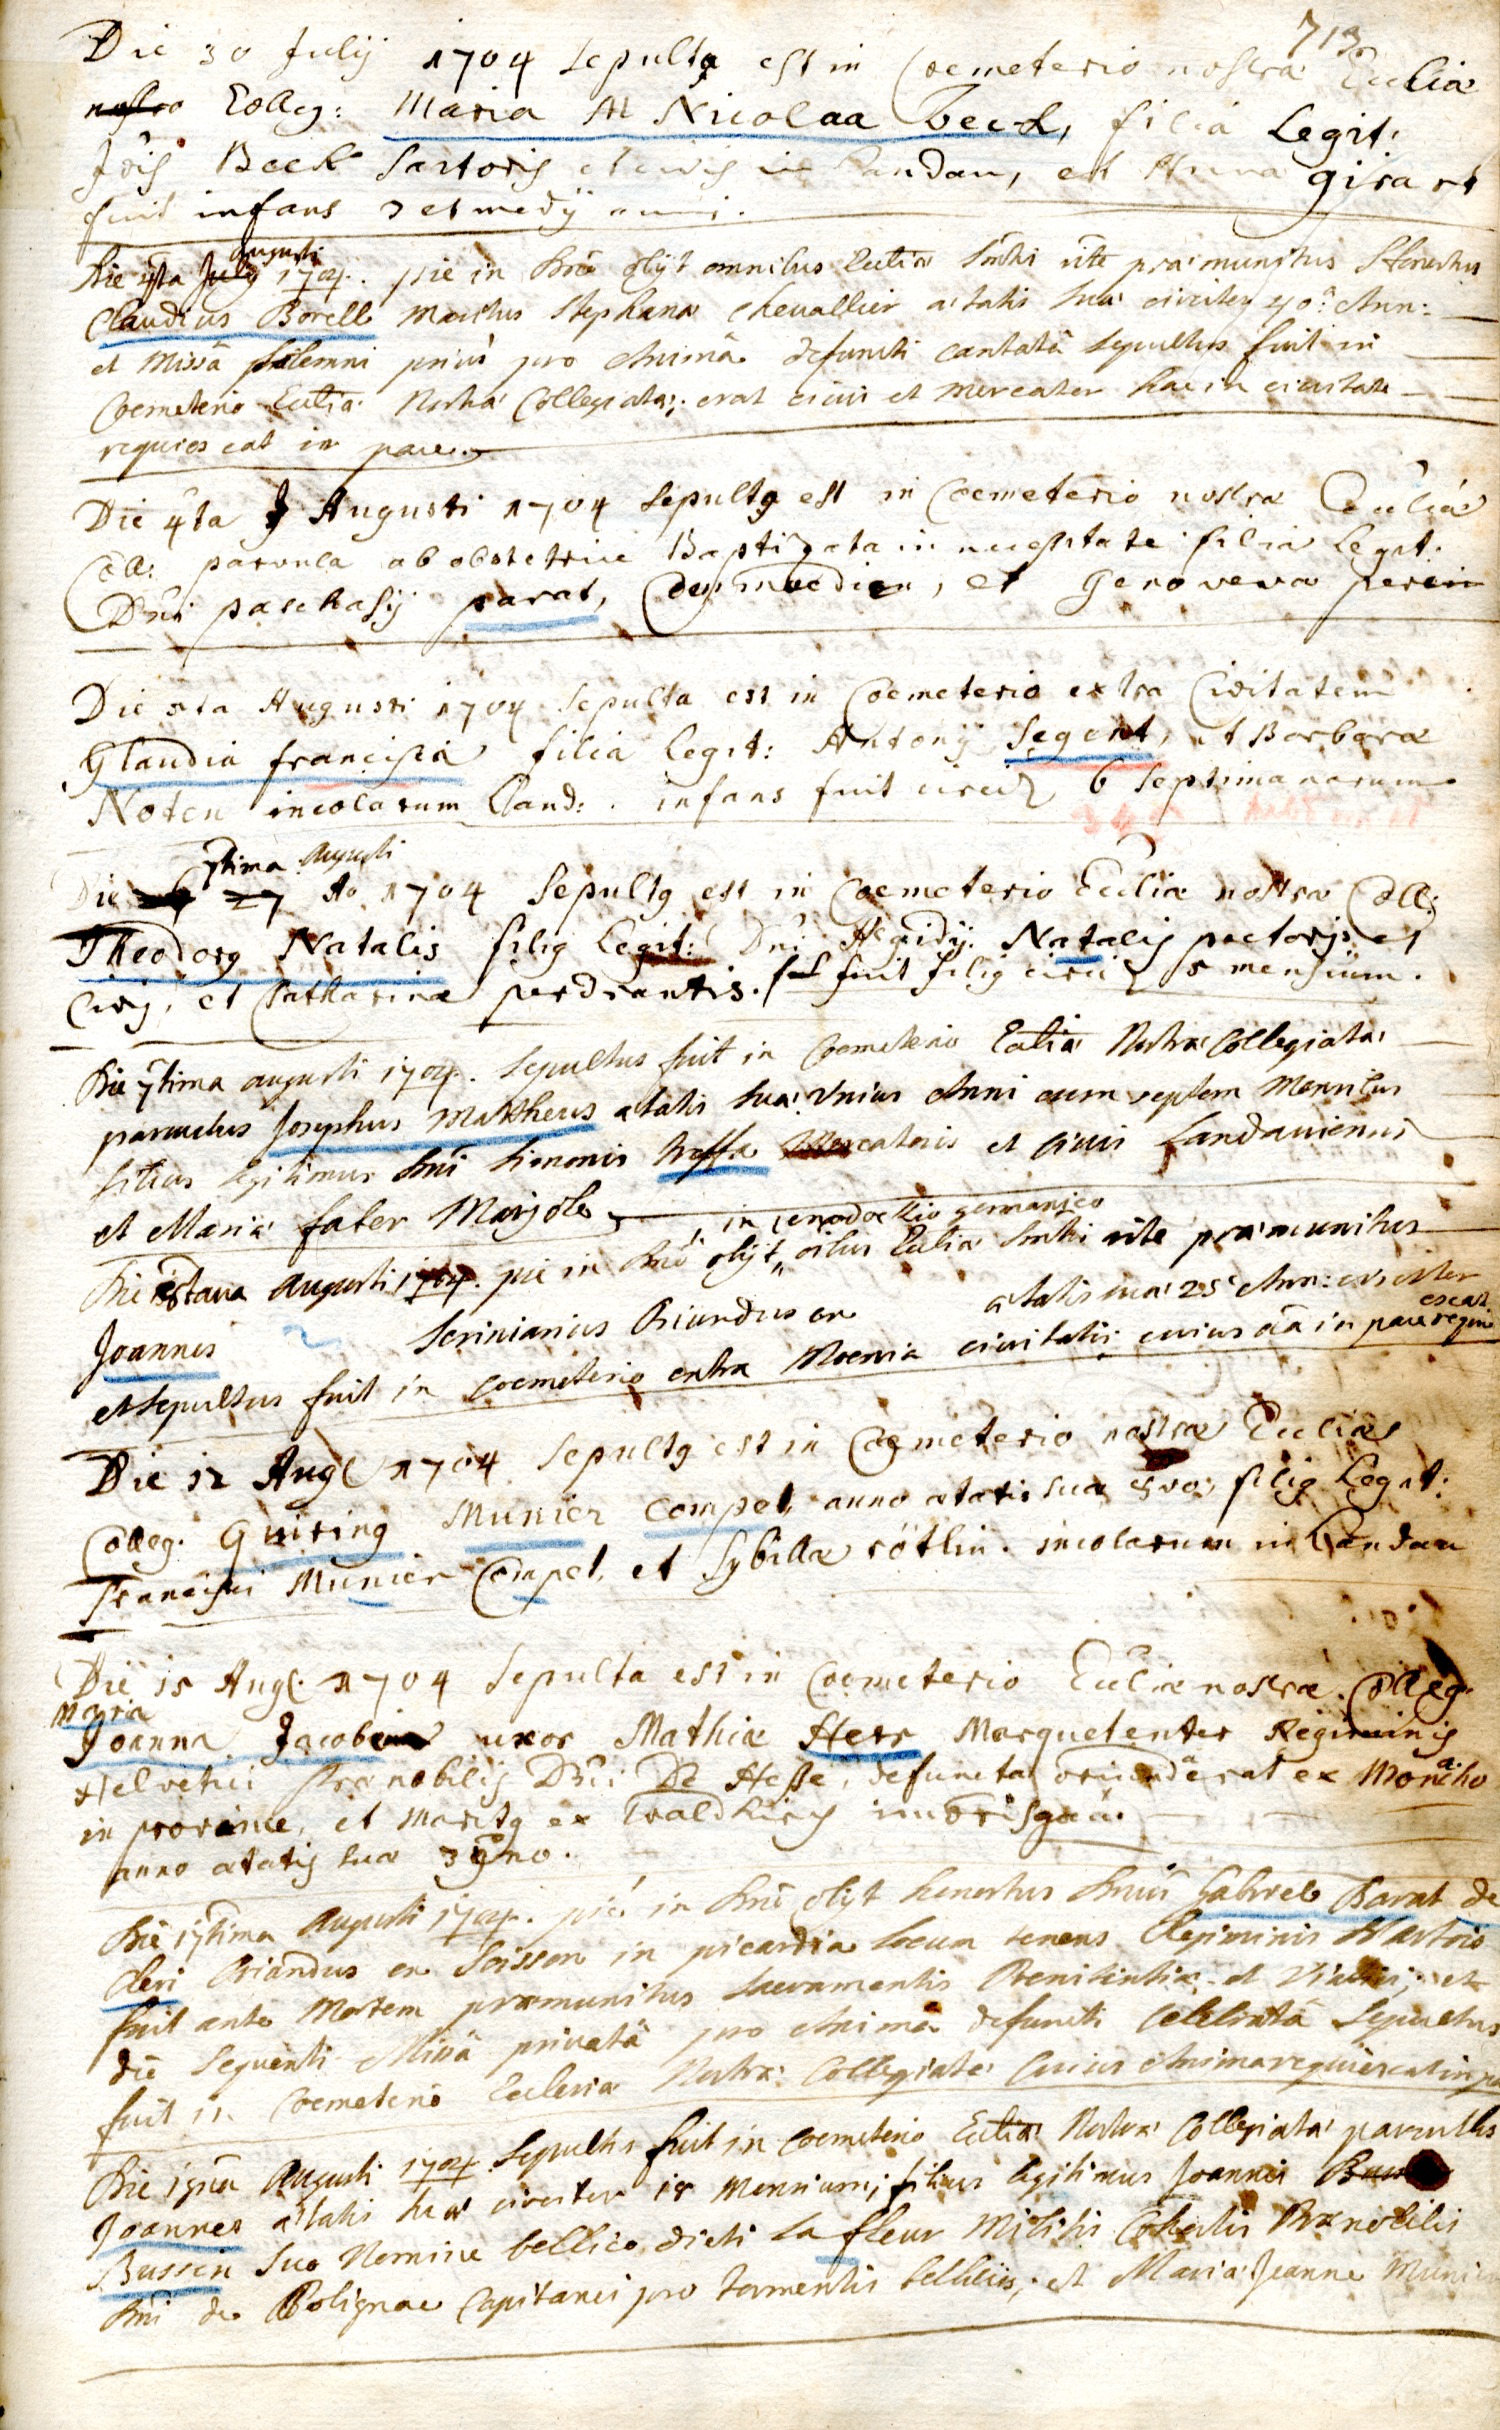 713.
Die 30 Julij 1704 Sepulta est in Coemeterio nostræ Eccliæ
nostro Colleg: Maria M Nicolaa Beck, filia Legit:
Jois Beck Sartoris et civis in Landau, et Anna girart
fuit infans 3 et medij anni.
Die 4ta July Augusti 1704. pie in Dno obijt omnibus Eccliæ Sacrtis rite præmunitus Honestus
Claudius Borell Maritus Stephanæ Chevallier ætatis suæ circiter 40. Ann:
et Missâ solemni prius pro Animâ defuncti cantatâ sepultus fuit in
Coemeterio Eccliæ Nostræ Collegiatæ; erat civis et Mercator hac in civitate
requiescat in pace.
Die 4ta J Augusti 1704 Sepultq est in Coemeterio nostræ Eccliæ
Coll: parvula ab obstetrice Baptizata in necessitate filia Legit:
Dni paschasij parat, et Genoveva perein
Die 5ta Augusti 1704 Sepulta est in Coemeterio extra Civitatem
Glaudia francisca filia Legit: Antonij Segent, et Barbara
Noten incolarum Land: infans fuit circit 6 Septimanarum
Die 7tima Augusti 27 Ao 1704 Sepultq est in Coemeterio Eccliæ nostræ Coll:
Theodorq Natalis filiq Legit: Dni Aegidij Natalis pectoris et
Civis, et Catharinæ perdrantis. fuit filiq circit 5 mensium.
Die 7tima augusti 1704. Sepultus fuit in Coemeterio Eccliæ Nostræ Collegiatæ
parvulus Josephus Mattheus ætatis suæ Unius Anni cum septem Mensibus
filius legitimus Dni Simonis Mercatoris et Civis Landaviensis
et Mariæ fater Marjole
Die 8tava Augusti 1704. pie in Dno obijt, in xenodochio germanico oibus Eccliæ Sacrtis rite præmunitus
Joannes Scriniarius Oriundus ex ætatis suæ 25 Ann:
et sepultus fuit in Coemeterio extra Moenia civitatis; cuius aîa in pace requiescat
Die 12 Augl 1704 Sepultq est in Coemeterio nostræ Eccliæ
Colleg. Quiring Munier Compet, anno ætatis suæ 5vo, filiq Legit:
Francisci Munier Compet, et Sybilla rötlin. incolarum in Landau
Die 15 Augl. 1704 Sepulta est in Coemeterio Eccliæ nostræ Colleg.
Maria
Joanna Jacobina uxor Mathiæ Herr Marquetenter Regiminis
Helvetici Prænobilis Dni De Hesse, defuncta oriunda erat ex
in provence, et maritq ex Waldkirch in brisgau.
anno ætatis suæ 39no.
Die 17tima Augusti 1704. pie in Dno obijt honestus Dnus Gabriel Barat de
Cleri Oriundus ex Soisson in picardia Locum tenens Regiminis
fuit ante Mortem præmunitus Sacramentis Poenitentiæ et Viatici; et
die Sequenti Missâ privatâ pro Animâ defuncti Celebratâ Sepultus
fuit in Coemeterio Ecclesiæ Nostræ Collegiatæ Cuius Anima requiescat in pa
Die 19na Augusti 1704 Sepultus fuit in Coemeterio Eccliæ Nostræ Collegiatæ parvulus
Joannes ætatis suæ circiter 18 Mensium; filius legitimus Joannis
Bussein Suo Nomine bellico dicti La fleur Militis Cohortis Prænobilis
Dni de Polignac Capitanei pro tormentis bellicis, et Mariæ Jeanne Munier